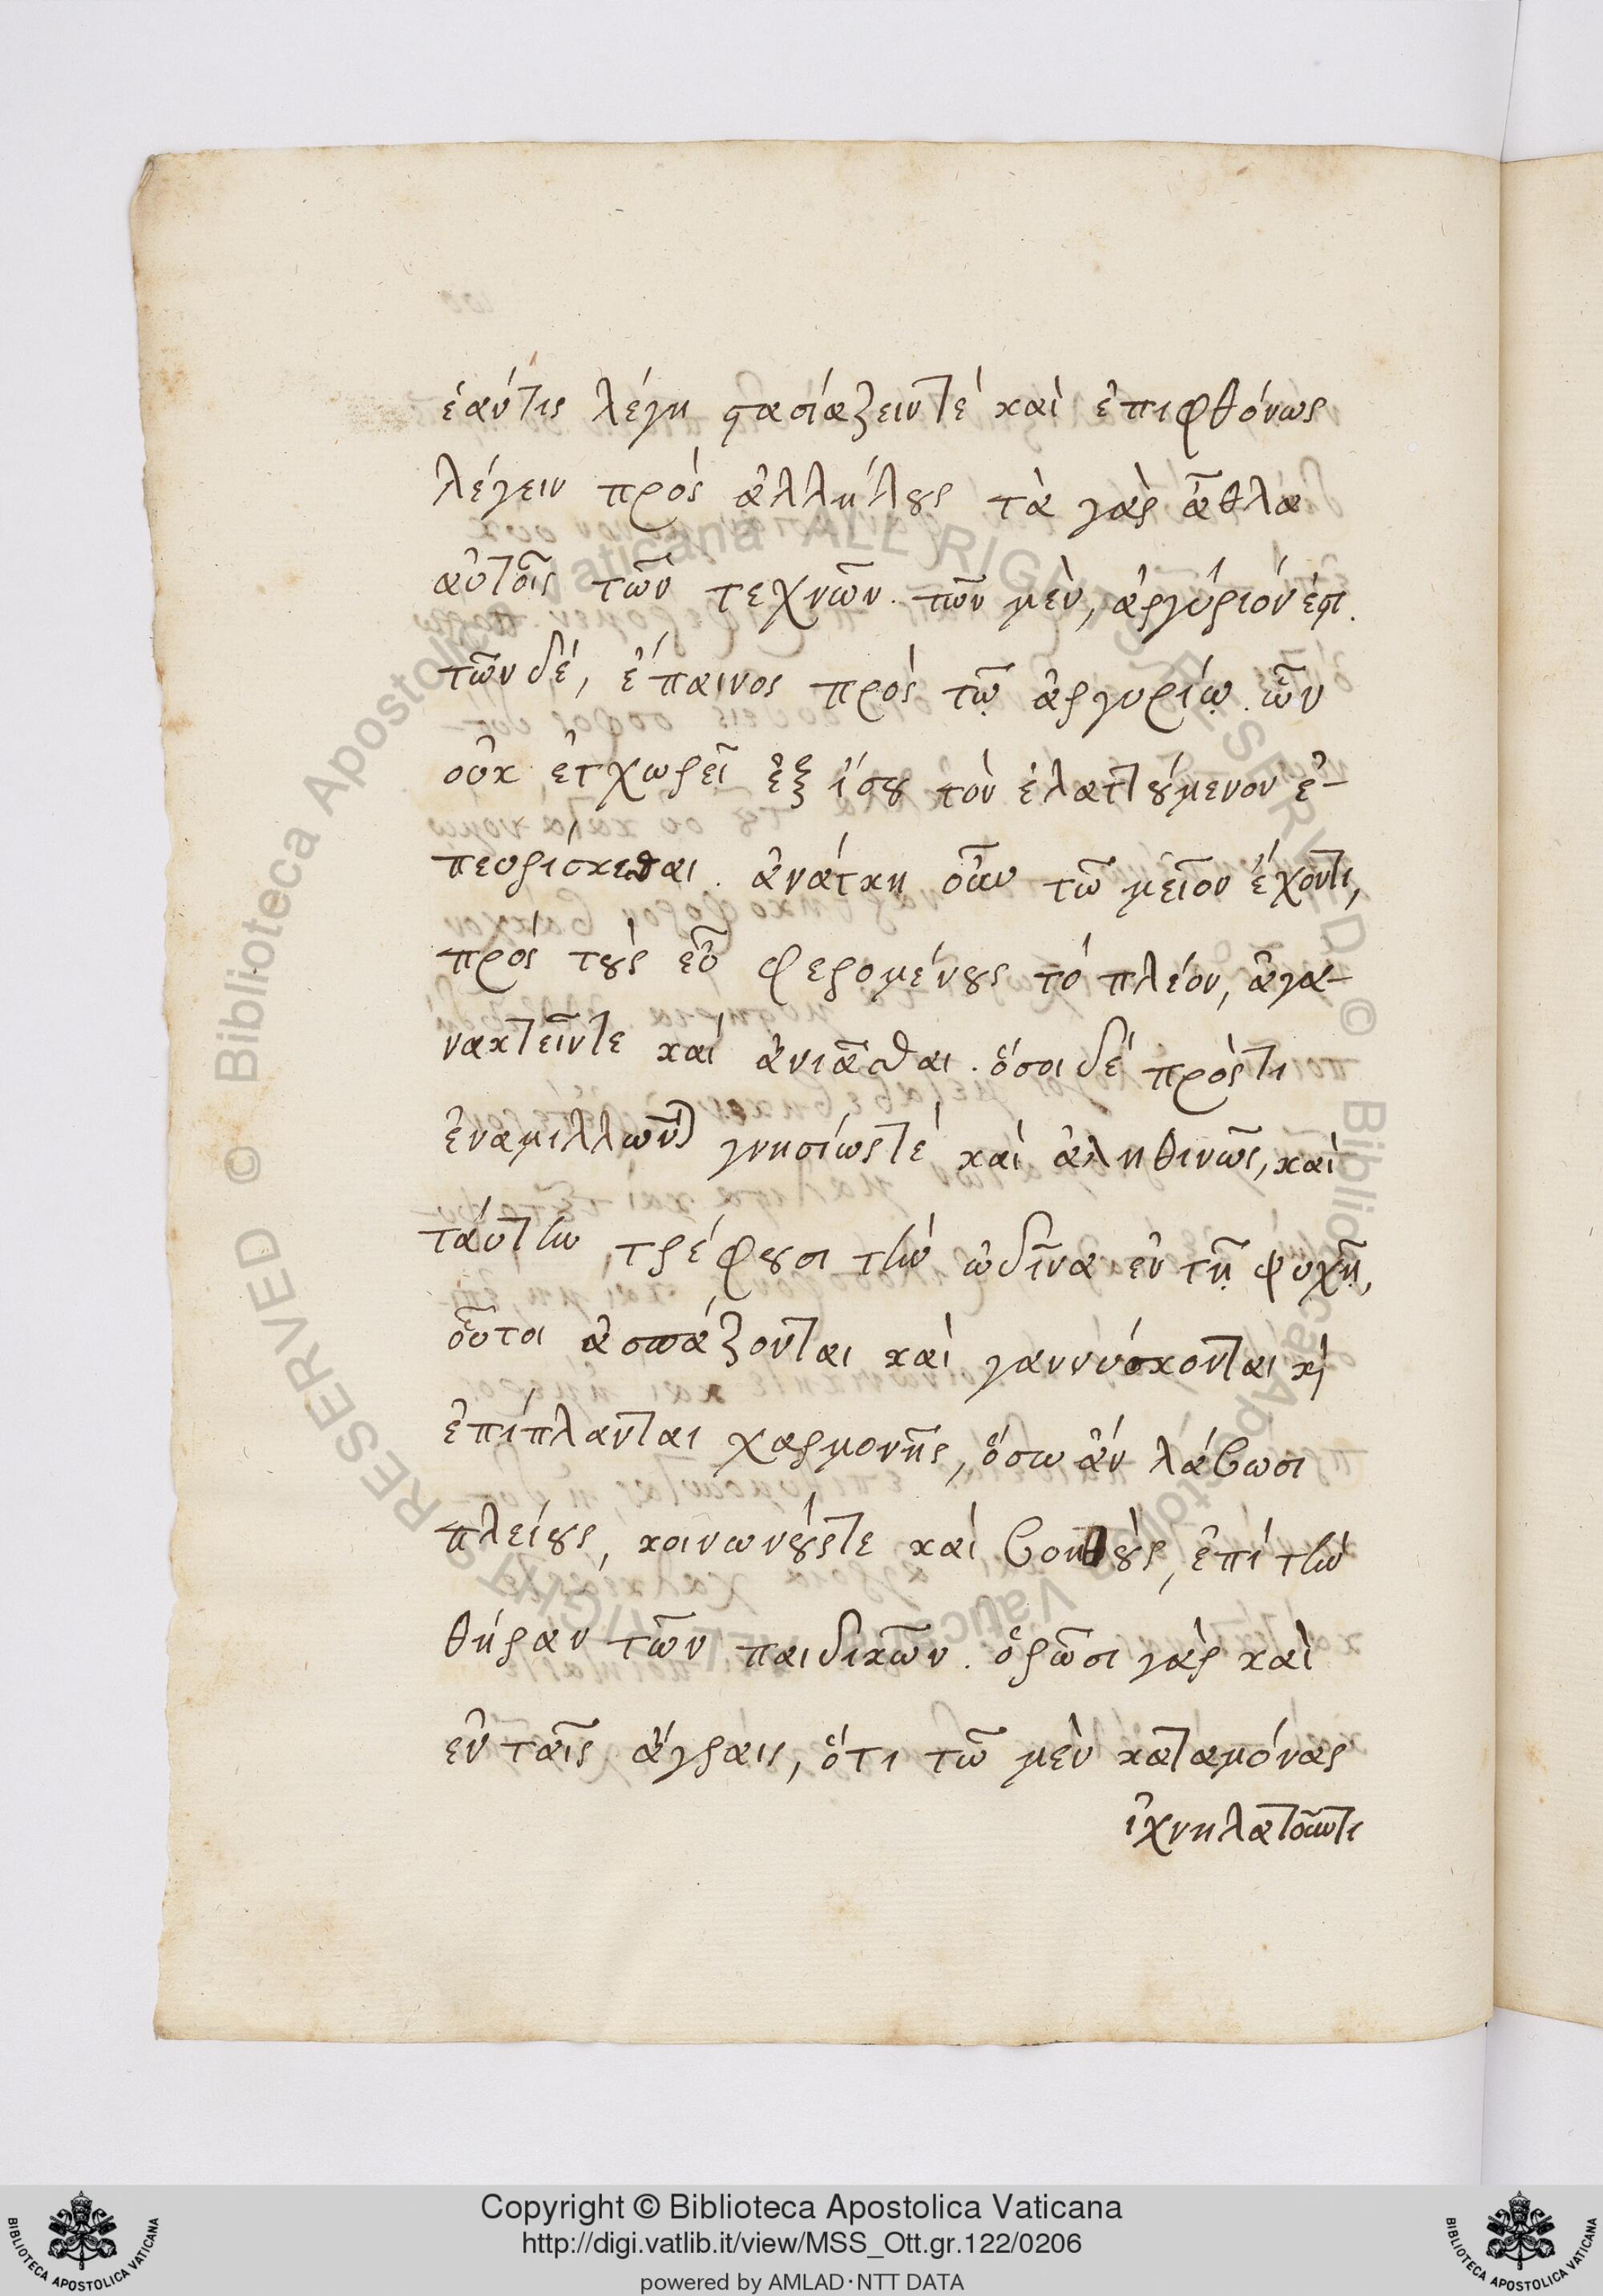 ἑαύτις λέγη στασίαζειντέ καὶ ἐπιφθόνως
λέγειν πρὸς ἀλλήλους τὰ γὰρ ἆθλα
αὐτοῖς τῶν τεχνῶν. τῶν μὲν, ἀργύριόν ἐστι.
τῶν δέ, ἔπαινος πρὸς τῷ ἀργυρίῳ. ὧν
οὐκ ἐγχωρεῖ ἐξ ἴσου τὸν ἐλαττούμενον ἐ-
πευρίσκεσθαι. ἀνάγκη οὖν τῶ μεῖον ἔχοντι,
πρὸς τοὺς εὖ φερομένους τὸ πλέον, ἀγα-
νακτεῖντε καὶ ἀνιᾶσθαι. ὅσοι δὲ πρὸςτι
ἐναμιλλῶν γνησίωςτέ καὶ ἀληθινῶς, καὶ
ταύτην τρέφουσι τὴν ὠδῖνα ἐν τῇ ψυχῇ,
οὗτοι ἀσπάζονται καὶ γαννύσκονται κ
ἐπίπλανται χαρμονῆς, ὅσω ἂν λάβωσι
πλείους, κοινωνούςτε καὶ βοηθοὺς, ἐπὶ τὴν
θήραν τῶν παιδικῶν. ὁρῶσι γὰρ καὶ
ἐν ταῖς ἄγραις, ὅτι τῶ μὲν καταμόνας
ἰχνηλατοῦντι
Copyright © Biblioteca Apostolica Vaticana
http://digi.vatlib.it/view/MSS_Ott.gr.122/0206
powered by AMLAD·NTT DATA